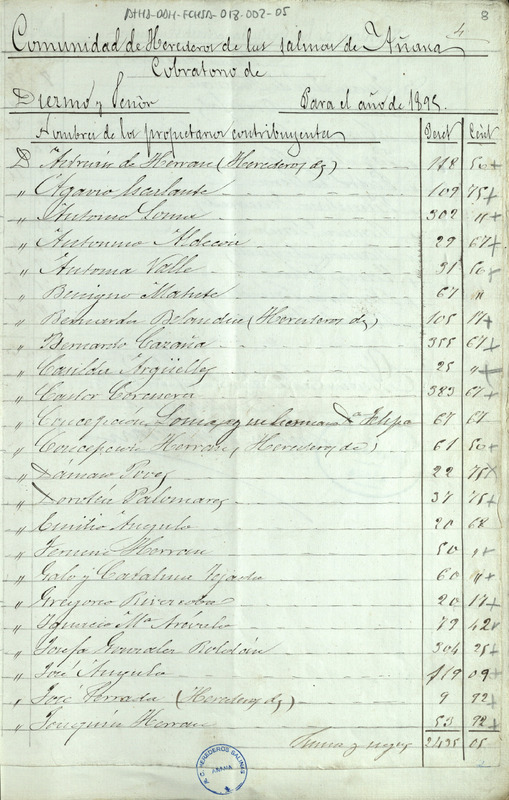 AHA-DDH-FCHSA-018-002-05
8
4
Comunidad de Herederos de las salinas de Añana
Cobratorio de
Diezmo y Señor Para el año de 1895.
Nombres de los propietarios contribuyentes Peset Cént
D Adrián de Herran (Herederos de) 118 50
" Antonio Loma 302 "
" Antonino Aldecoa 29 67
" Antonia Valle 31
" Benigno 67 "
" Bernarda (Herederos de) 105 17
" Bernardo Cazaña 355 67
" Argüelles 25 "
" Castor Corcuera 383 67
" Concepción Loma y su hermana Dª Felipa 67 67
" Concepción Herran, (Herederos de) 61 50
" Damaso Poves 22 75
" Dorotea Palomares 37 75
" Emilio Angulo 20 68
" Herran 50 "
" Galo y Catalina Tejada 60 "
" Gregorio 20 17
" Ignacio Mª Arévalo 79 42
" Josefa Gonzalez Roldán 304 25
" José Angulo 119 09
" José (Herederos de) 9 92
" Joaquina Herran 53 92
Suma y sigue 2435 05
HEREDEROS SALINAS
AÑANA